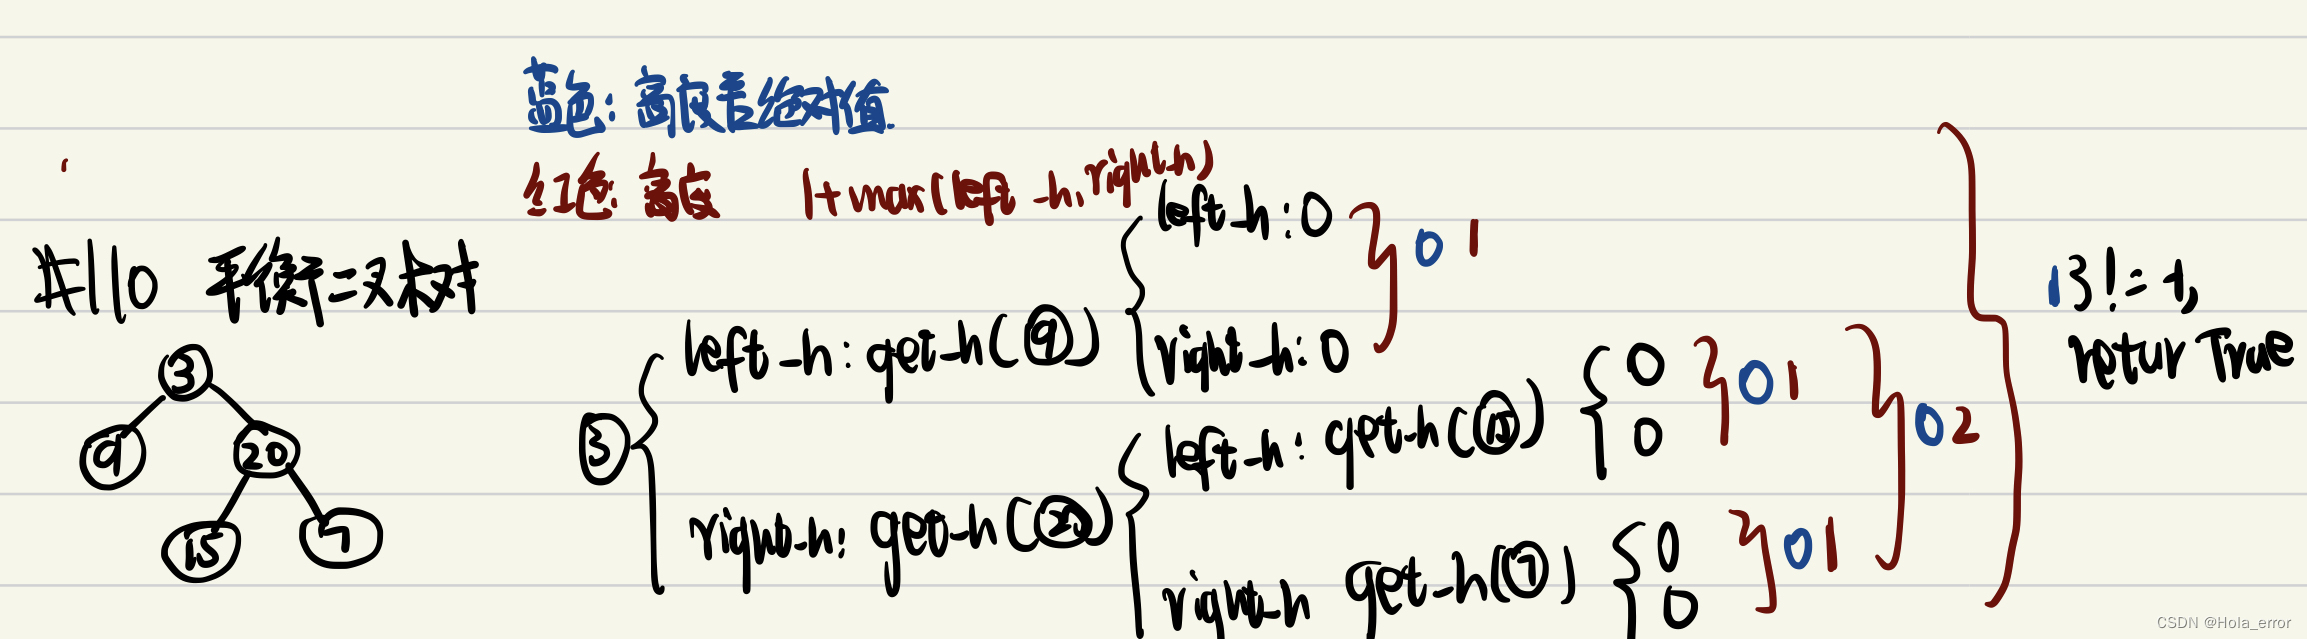 蓝色:高度差绝对值.
红色:高度 1+max(left_h,right_h)
#110 平衡二叉树
3
9 20
15 7
3
left_h:get_h(9)
left_h:0
right_h:0
0 1
right_h:get_h(20)
left_h:get_h(15)
0
0
0 1
right_h get_h(7)
0
0
0 1
0 2
1 3!=-1,
retur True
CSDN @Hola_error